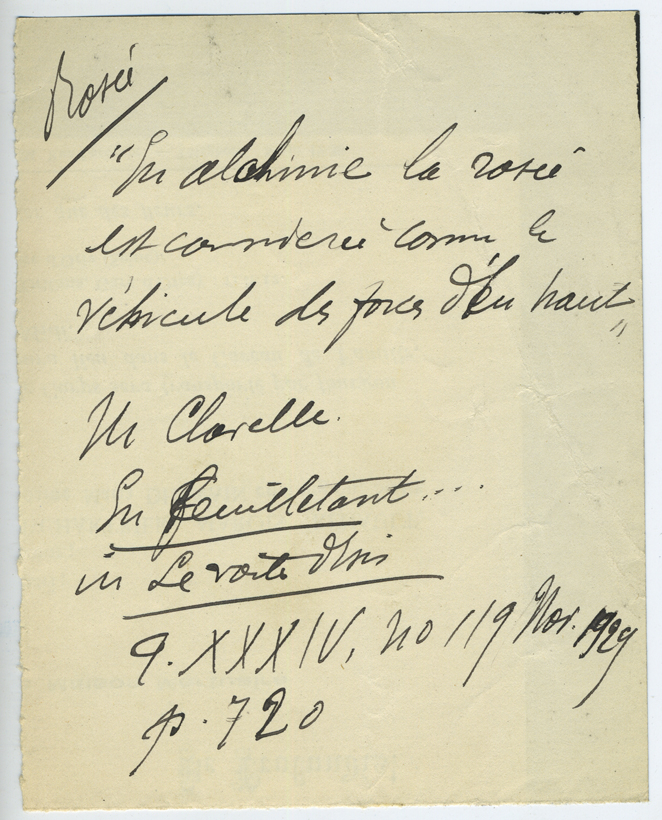 Rosée
"En alchimie la rosée
est considerée comme le
véhicule des forces d'en haut"
M Clavelle.
En feuilletant...
in Le voile d'Isis
9. XXXIV, no 119 Nov. 1929
p. 720